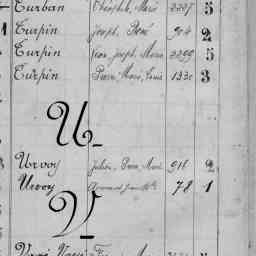 Turban Théophile, Marie 5
Turpin Joseph, René 904 2
Turpin Jean, Joseph, Marie 2299 5
Turpin Pierre, Marie, Louis 1330 3
U
Urvoy Julien, Pierre, Marie 916 2
Urvoy 78 1
V